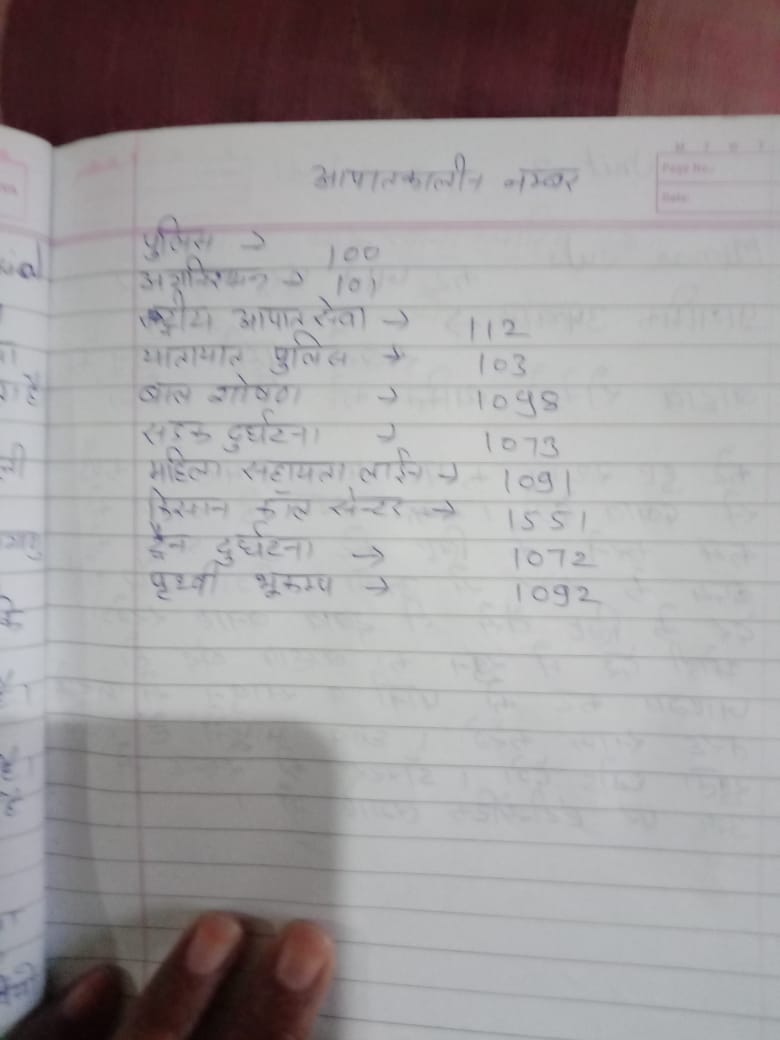 आपातकालीन नम्बर
Page No.:
Date:
पुलिस → 100
अग्निशमन → 101
राष्ट्रीय आपात सेवा → 112
यातायात पुलिस → 103
बाल शोषण → 1098
सडक दुर्घटना → 1073
महिला सहायता लाईन → 1091
किसान कॉल सेन्टर → 1551
ट्रेन दुर्घटना → 1072
पृथ्वी भूकम्प → 1092